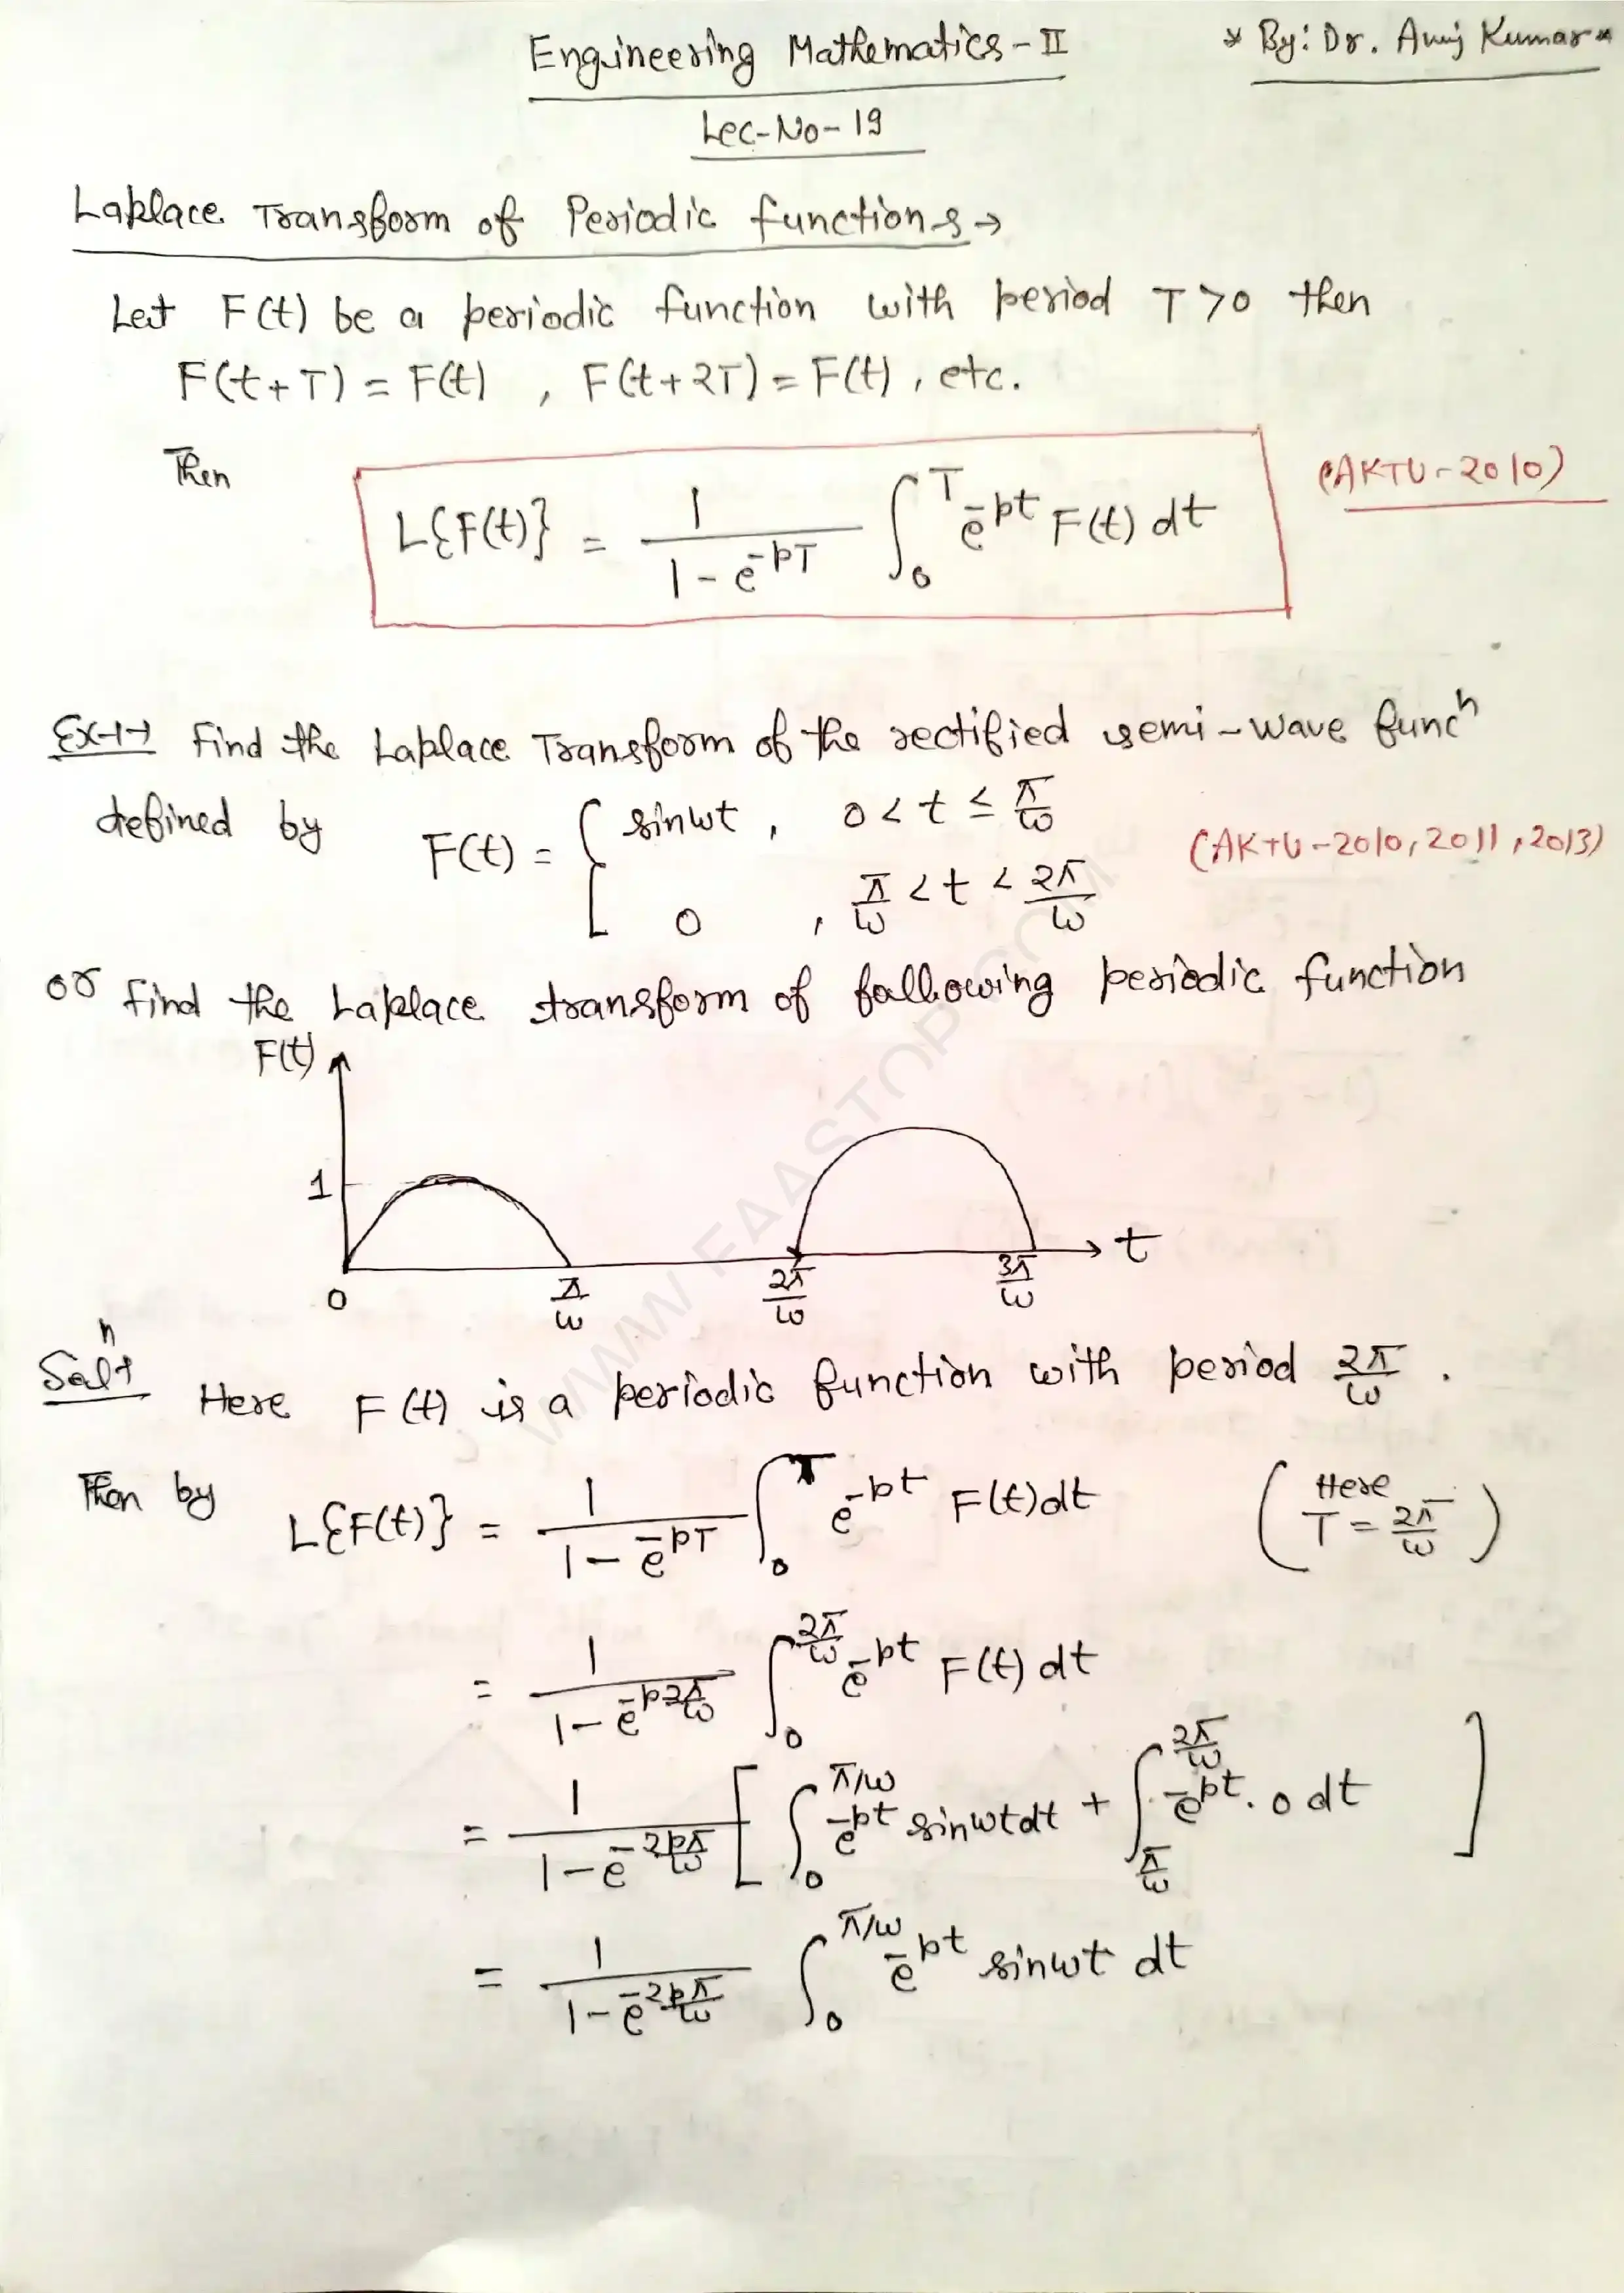 Engineering Mathematics-II
* By: Dr. Anuj Kumar *
Lec-No-19
Laplace Transform of Periodic functions→
Let F(t) be a periodic function with period T>0 then
F(t+T) = F(t) , F(t+2T) = F(t), etc.
Then L{F(t)} = 1/(1-e^-pT) ∫_0^T e^-pt F(t) dt (AKTU-2010)
Ex-1→ Find the Laplace Transform of the rectified semi-wave func^n
defined by F(t) = { sinωt , 0 < t ≤ π/ω
0 , π/ω < t < 2π/ω
(AKTU-2010, 2011, 2013)
or find the Laplace transform of following periodic function
F(t)
1
0 π/ω 2π/ω 3π/ω t
Sol^n→ Here F(t) is a periodic function with period 2π/ω .
Then by L{F(t)} = 1/(1-e^-pT) ∫_0^T e^-pt F(t)dt (Here T = 2π/ω)
= 1/(1-e^-p2π/ω) ∫_0^2π/ω e^-pt F(t) dt
= 1/(1-e^-2pπ/ω) [ ∫_0^π/ω e^-pt sinωt dt + ∫_π/ω^2π/ω e^-pt . 0 dt ]
= 1/(1-e^-2pπ/ω) ∫_0^π/ω e^-pt sinωt dt
WWW.FAASTOP.COM